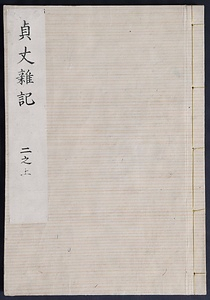 貞丈雜記
二之上